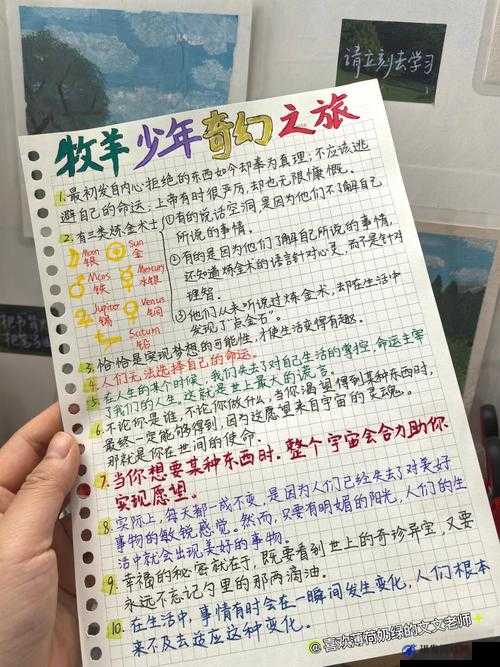 请立刻去学习
牧羊少年奇幻之旅
1. 最初发自内心拒绝的东西如今却奉为真理，不应该逃
避自己的命运，上帝有时很严厉，却也无限慷慨。
2. 有三类炼金术士
①有的说话空洞，是因为他们不了解自己
所说的事情。
②有的是因为他们了解自己所说的事情，
还知道炼金术的语言针对心灵，而不是针对
理智。
③他们从未听说过炼金术，却在生活中
发现了“点金石”。
Moon
银
Sun
金
Mars
铁
Mercury
水银
Jupiter
锡
Venus
铜
Saturn
铅
3. 恰恰是实现梦想的可能性，才使生活变得有趣。
4. 人们无法选择自己的命运。
5. 在人生的某个时候，我们失去了对自己生活的掌控，命运主宰
了我们的人生，这就是世上最大的谎言。
6. 不论你是谁，不论你做什么，当你渴望得到某种东西时，
最终一定能够得到，因为这愿望来自宇宙的灵魂。
那就是你在世间的使命。
7. 当你想要某种东西时，整个宇宙会合力助你
实现愿望。
8. 实际上，每天都一成不变，是因为人们已经失去了对美好
事物的敏锐感觉。然而，只要有明媚的阳光，人们的生
活中就会出现美好的事物。
9. 幸福的秘密就在于，既要看到世上的奇珍异宝，又要
永远不忘记勺里的那两滴油。
10. 在生活中，事情有时会在一瞬间发生变化，人们根本
来不及去适应这种变化。
@喜欢薄荷奶绿的文文老师